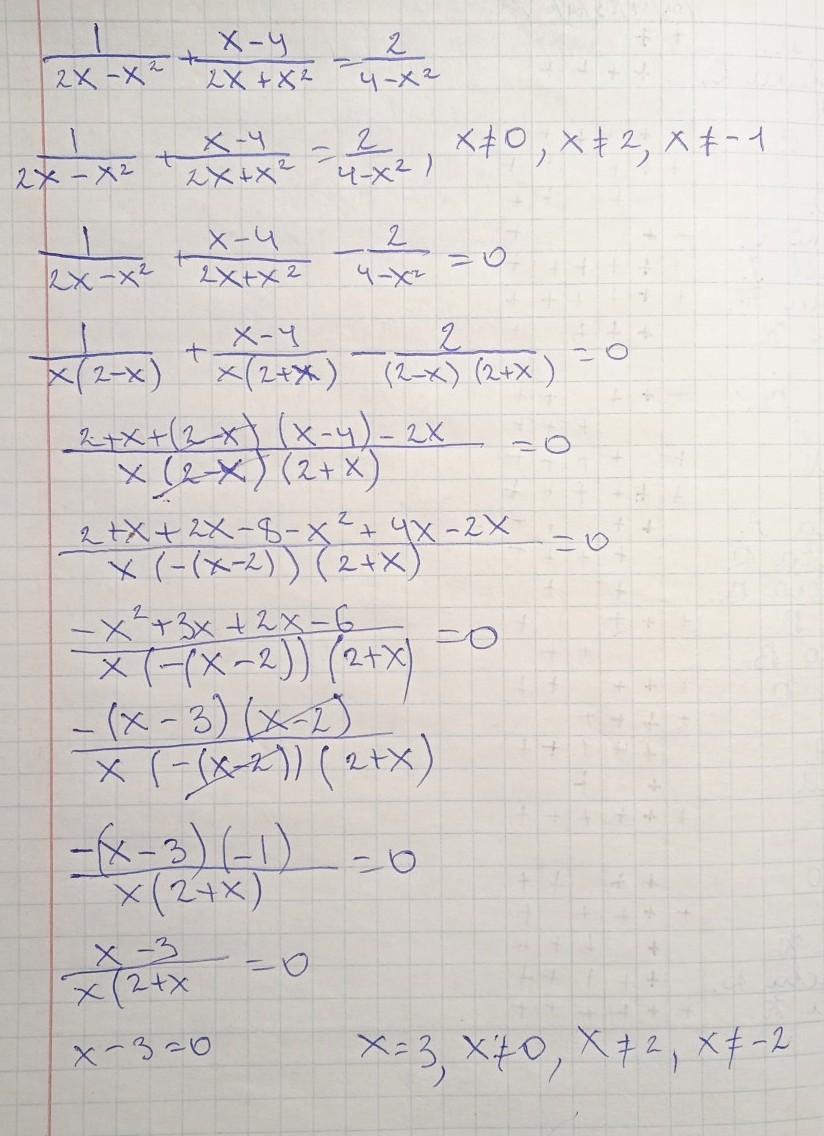 1/(2x-x²) + (x-4)/(2x+x²) = 2/(4-x²)
1/(2x-x²) + (x-4)/(2x+x²) = 2/(4-x²), x≠0, x≠2, x≠-1
1/(2x-x²) + (x-4)/(2x+x²) - 2/(4-x²) = 0
1/(x(2-x)) + (x-4)/(x(2+x)) - 2/((2-x)(2+x)) = 0
(2+x+(2-x)(x-4)-2x)/(x(2-x)(2+x)) = 0
(2+x+2x-8-x²+4x-2x)/(x(-(x-2))(2+x)) = 0
(-x²+3x+2x-6)/(x(-(x-2))(2+x)) = 0
(-(x-3)(x-2))/(x(-(x-2))(2+x))
(-(x-3)(-1))/(x(2+x)) = 0
(x-3)/(x(2+x) = 0
x-3=0 x=3, x≠0, x≠2, x≠-2